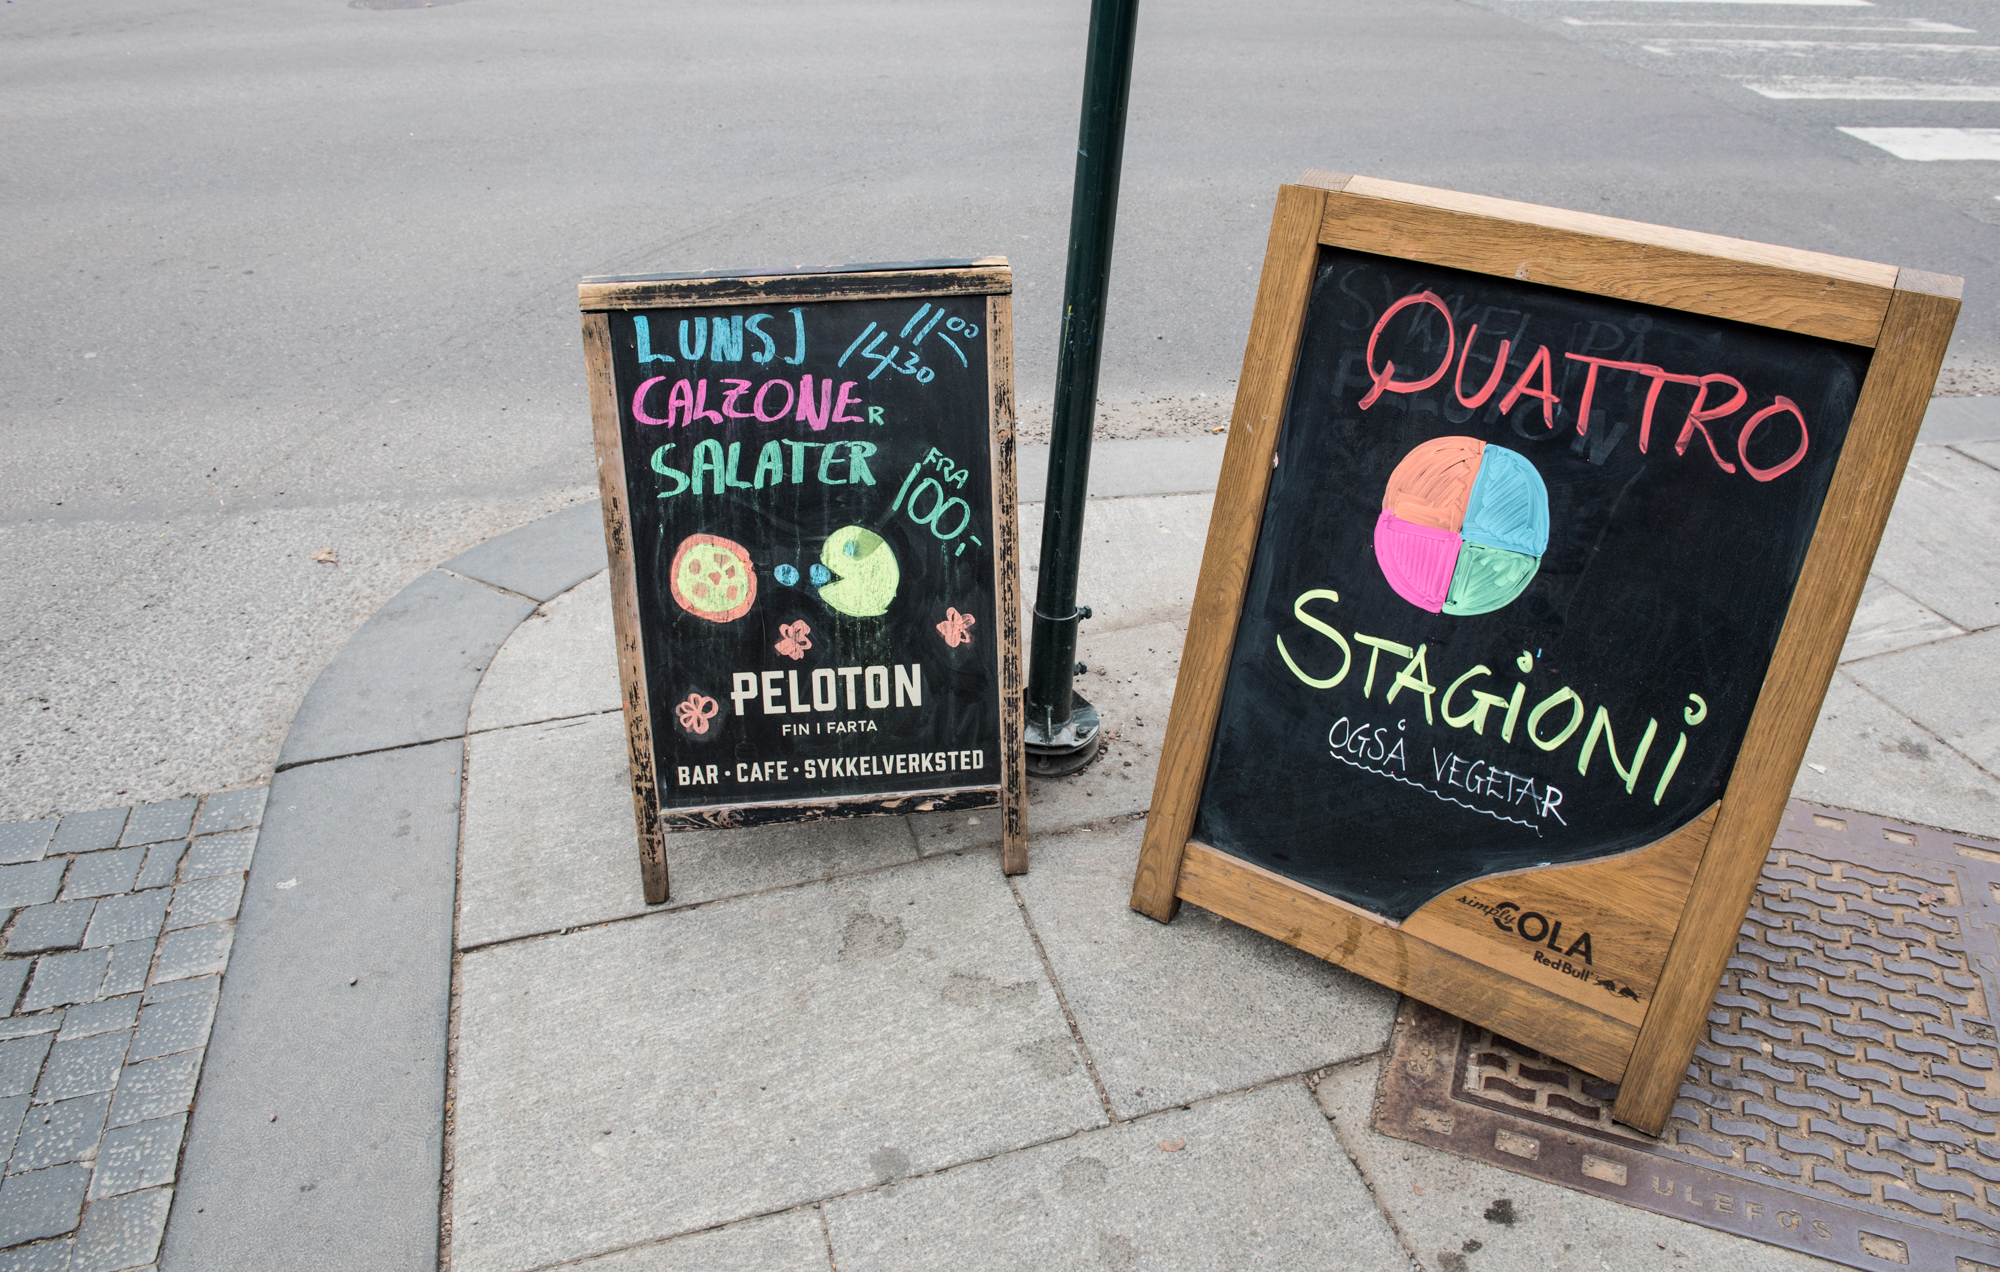 LUNSJ 1100
14 30
CALZONER
SALATER
FRA
100,-
PELOTON
FIN I FARTA
BAR · CAFE · SYKKELVERKSTED
QUATTRO
STAGIONI
OGSÅ VEGETAR
simply
COLA
Red Bull
SYKKEL PÅ
PELOTON
ULEFOS